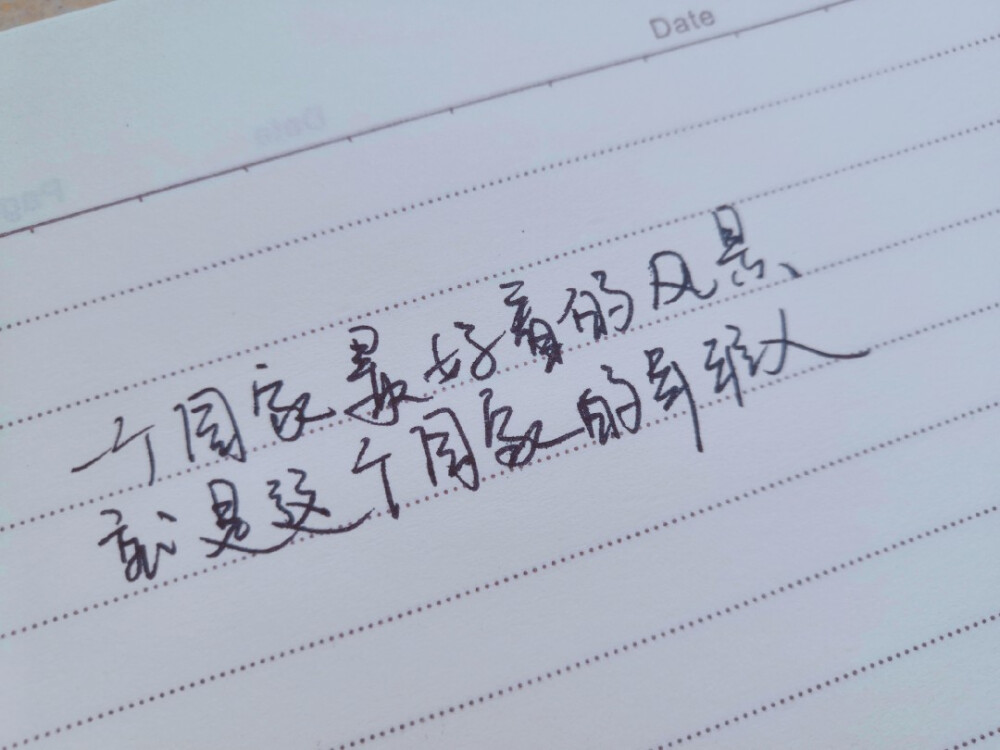 Date
一个国家最好看的风景、
就是这个国家的年轻人